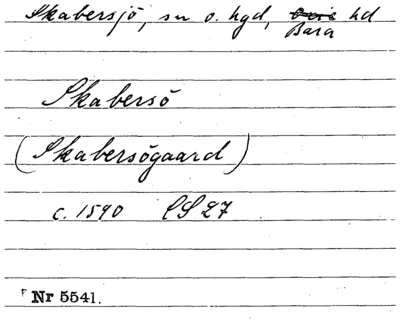 Skabersjö, sn o. hgd, Bara hd
Skabersö
(Skabersögaard)
c. 1590 CS 27
Nr 5541.